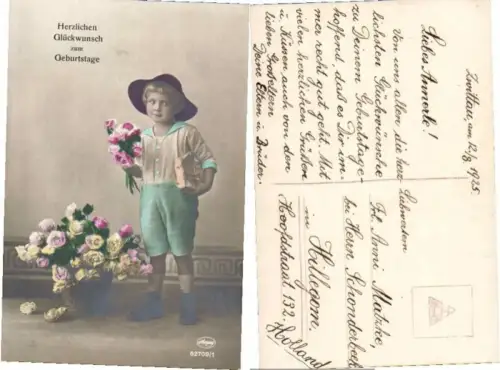 Herzlichen
Glückwunsch
zum
Geburtstage
92709/1
Zwittau, am 21/8 1935.
Liebes Annerle!
Von uns allen die herz-
lichsten Glückwünsche
zu Deinem Geburtstage-
hoffend, daß es Dir im-
mer recht gut geht. Mit
vielen herzlichen Grüßen
u. Küssen auch von den
lieben Großeltern
Deine Eltern u. Brüder.
Frl. Anni Matzke,
bei Herrn Schonderbeek
in Hillegom,
Hoofdstraat 132.
Holland